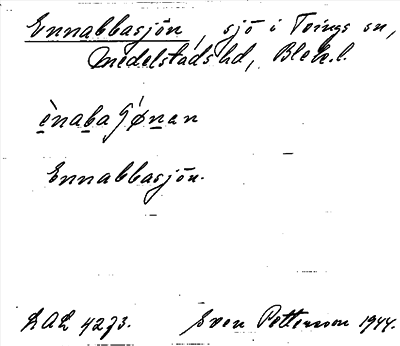 Ennabbasjön, sjö i Tvings sn,
Medelstads hd, Blek. l.
ènabaʃø̀nan
Ennabbasjön.
LAL 4273. Sven Pettersson 1944.